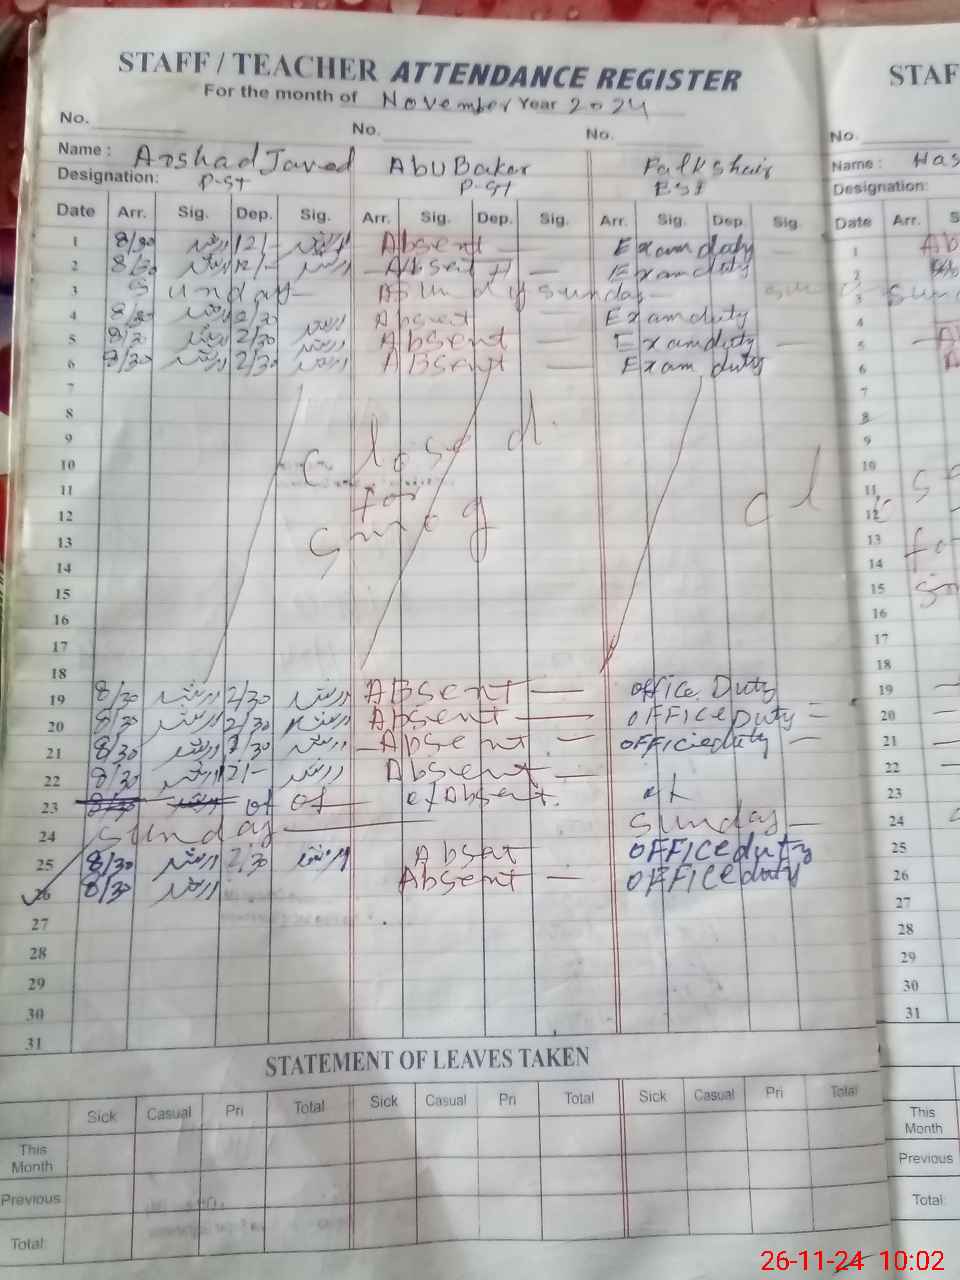 STAFF / TEACHER ATTENDANCE REGISTER
STAF
For the month of November Year 2024
No. No. No. No.
Name : Arshad Javed AbuBaker Falkshair Name : Has
Designation: P-ST P-ST EST Designation:
Date Arr. Sig. Dep. Sig. Arr. Sig. Dep. Sig. Arr. Sig. Dep. Sig Date Arr. S
1 8/30 ارشد 12/- ارشد Absent — Exam duty 1 Ab
2 8/30 ارشد 12/- ارشد Absent — Exam duty 2
3 Sunday — Sunday — 3 Sun
4 8/30 ارشد 2/30 Absent — Exam duty 4
5 8/30 ارشد 2/30 ارشد Absent — Exam duty — 5 — A
6 8/30 ارشد 2/30 ارشد ABsent — Exam duty 6 A
7 7
8 8
9 closed 9
10 10
11 for cl 11
12 12
13 smog 13 fo
14 14
15 15
16 16
17 17
18 18
19 8/30 ارشد 2/30 ارشد ABsent — office Duty 19
20 8/30 ارشد 2/30 ارشد Absent — OFFICE Duty = 20
21 8/30 ارشد 2/30 ارشد — Absent — OFFiceduty — 21
22 8/30 ارشد 12/- ارشد Absent — 22
23 8/30 ارشد of of — Absent. 23
24 Sunday — Sunday — 24
25 8/30 ارشد 2/30 ارشد Absat OFFICE duty 25
26 8/30 ارشد Absent — OFFICE duty 26
27 27
28 28
29 29
30 30
31 31
STATEMENT OF LEAVES TAKEN
Sick Casual Pri Total Sick Casual Pri Total Sick Casual Pri Total
This Month This Month
Previous Previous
Total: Total:
26-11-24 10:02